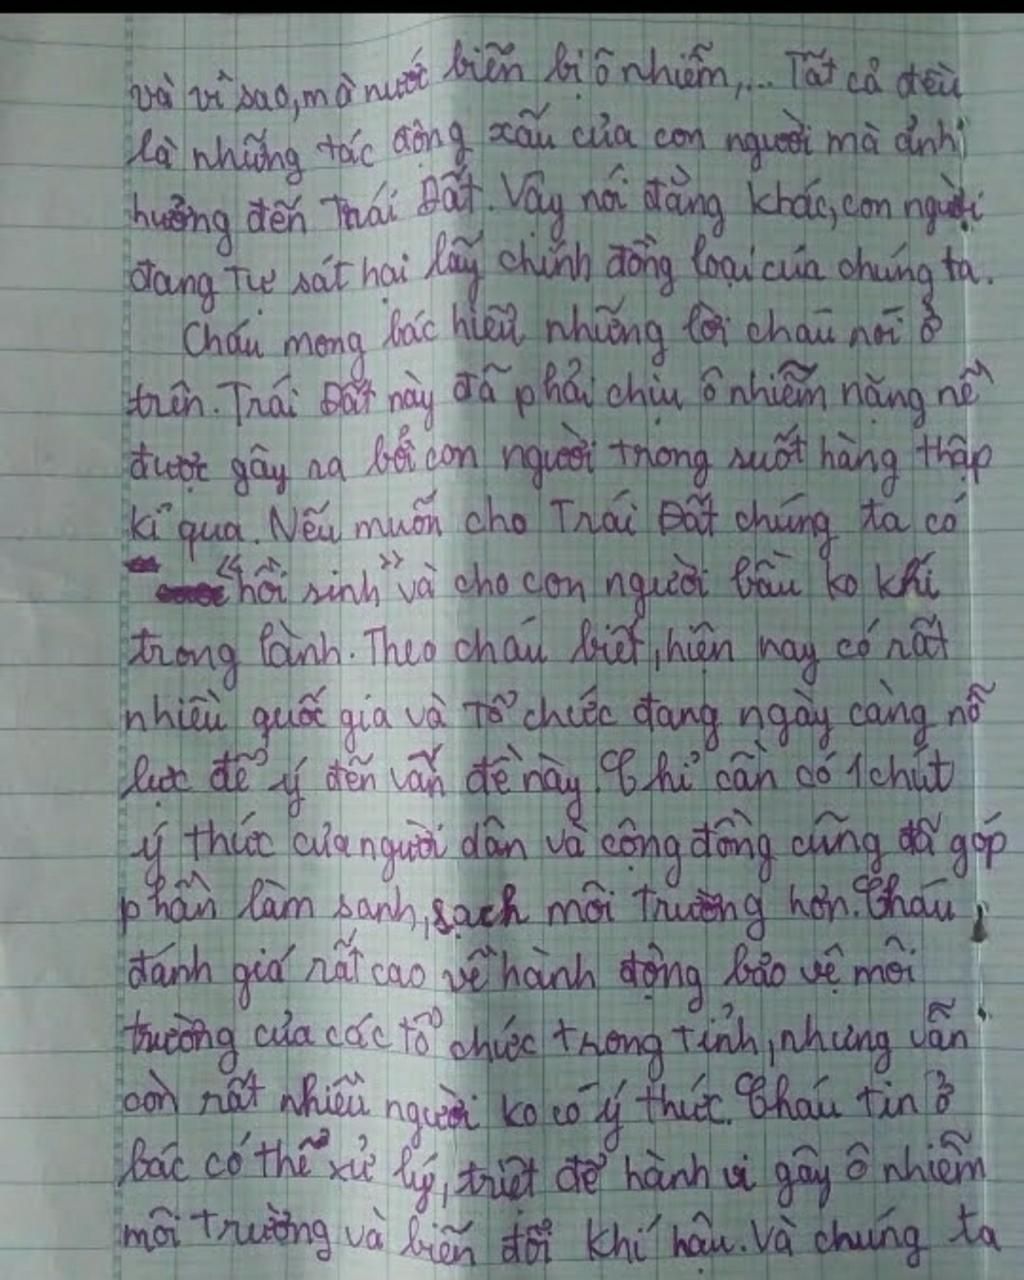 và vì sao, mà nước biển bị ô nhiễm,... Tất cả đều
là những tác động xấu của con người mà ảnh
hưởng đến Trái Đất. Vậy nói đằng khác, con người
đang tự sát hại lấy chính đồng loại của chúng ta.
Cháu mong bác hiểu những lời cháu nói ở
trên. Trái Đất này đã phải chịu ô nhiễm nặng nề
được gây ra bởi con người trong suốt hàng thập
kỉ qua. Nếu muốn cho Trái Đất chúng ta có
"hồi sinh" và cho con người bầu ko khí
trong lành. Theo cháu biết, hiện nay có rất
nhiều quốc gia và tổ chức đang ngày càng nỗ
lực để ý đến vấn đề này. Chỉ cần có 1 chút
ý thức của người dân và cộng đồng cũng đã góp
phần làm sanh, sạch môi trường hơn. Cháu
đánh giá rất cao về hành động bảo vệ môi
trường của các tổ chức trong tỉnh, nhưng vẫn
còn rất nhiều người ko có ý thức. Cháu tin ở
bác có thể xử lý, triệt để hành vi gây ô nhiễm
môi trường và biến đổi khí hậu. Và chúng ta